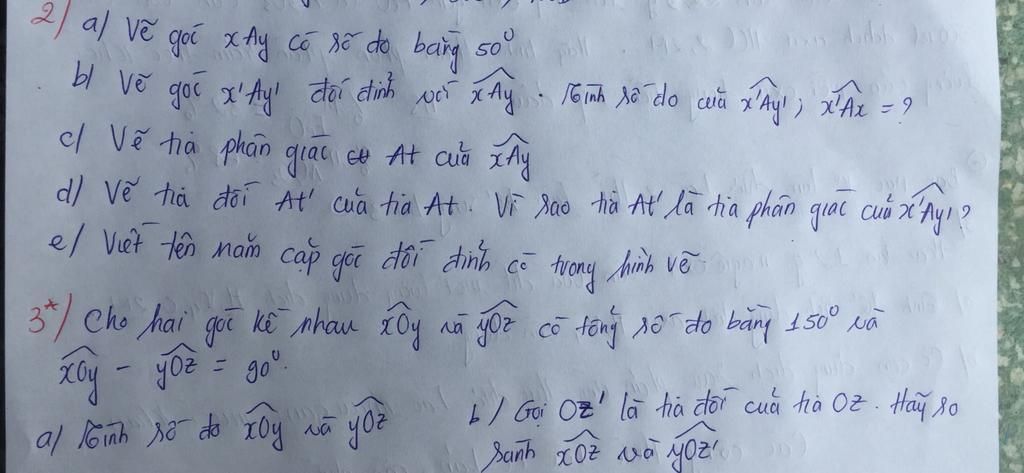 2/ a/ Vẽ góc xAy có số đo bằng 50⁰
b/ Vẽ góc x'Ay' đối đỉnh với xAy. Tính số đo của x'Ay'; x'Ax = ?
c/ Vẽ tia phân giác At của xAy
d/ Vẽ tia đối At' của tia At. Vì sao tia At' là tia phân giác của x'Ay'?
e/ Viết tên năm cặp góc đối đỉnh có trong hình vẽ.
3*/ Cho hai góc kề nhau xOy và yOz có tổng số đo bằng 150⁰ và
xOy - yOz = 90⁰.
a/ Tính số đo xOy và yOz
b/ Gọi Oz' là tia đối của tia Oz. Hãy so
sánh xOz và yOz'